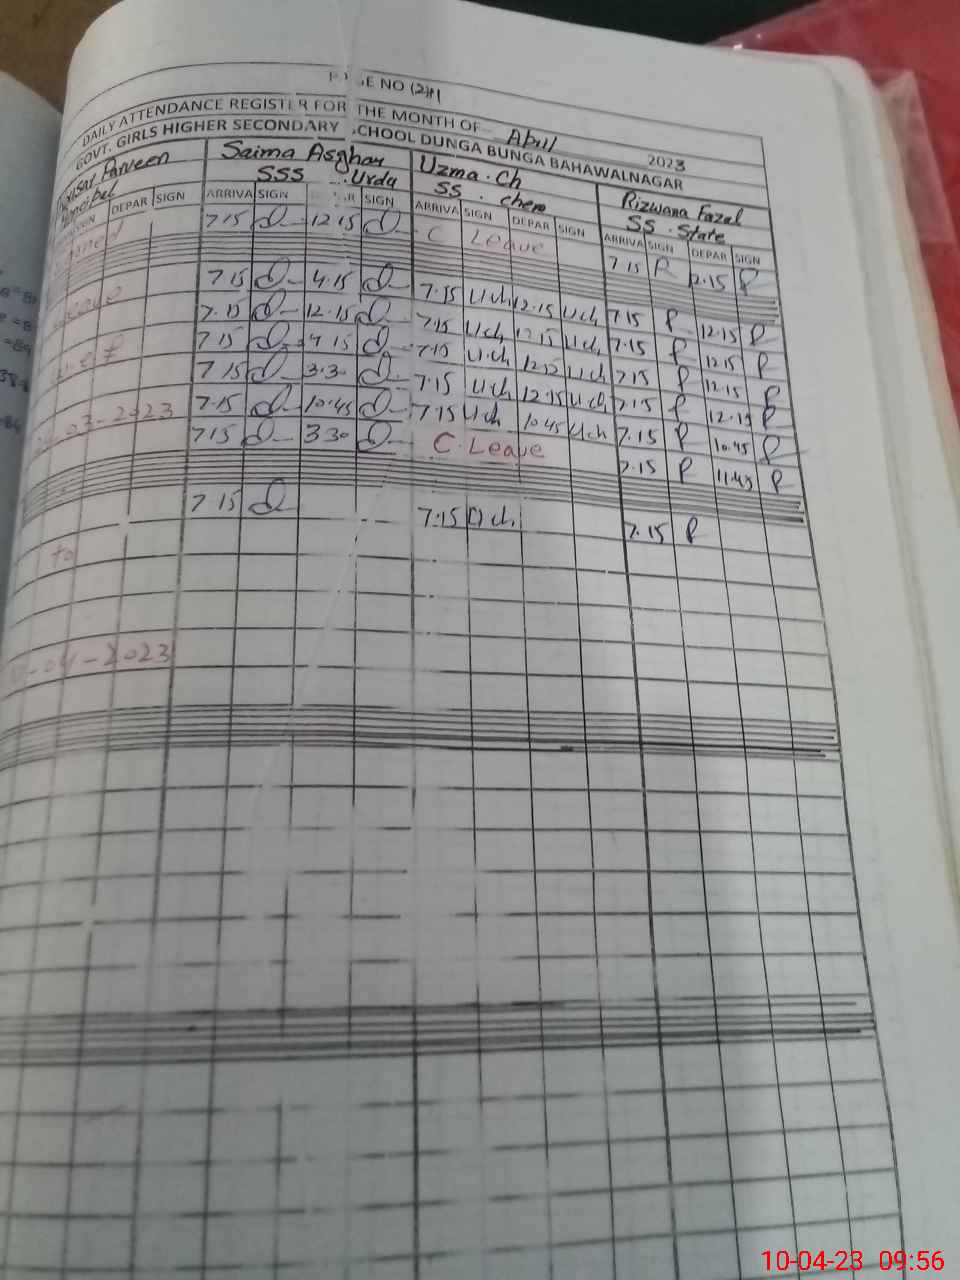 PAGE NO (241)
DAILY ATTENDANCE REGISTER FOR THE MONTH OF April 2023
GOVT. GIRLS HIGHER SECONDARY SCHOOL DUNGA BUNGA BAHAWALNAGAR
Parveen Saima Asghar Uzma. Ch Rizwana Fazal
SSS Urdu SS. chem SS. State
DEPAR SIGN ARRIVA SIGN SIGN ARRIVA SIGN DEPAR SIGN ARRIVA SIGN DEPAR SIGN
7.15 12.15 C Leave 7.15 12.15
7.15 4.15 7.15 U.ch 12.15 U.ch 7.15 12.15
Leave 7.15 12.15 7.15 U.ch 12.15 U.ch 7.15 12.15
7.15 4.15 7.15 U.ch 12.15 U.ch 7.15 12.15
7.15 3.30 7.15 U.ch 12.15 U.ch 7.15 12.15
03-2023 7.15 10.45 7.15 U.ch 10.45 U.ch 7.15 10.45
7.15 3.30 C. Leave 7.15 11.45
7.15 7.15 U.ch 7.15
to
-04-2023
10-04-23 09:56